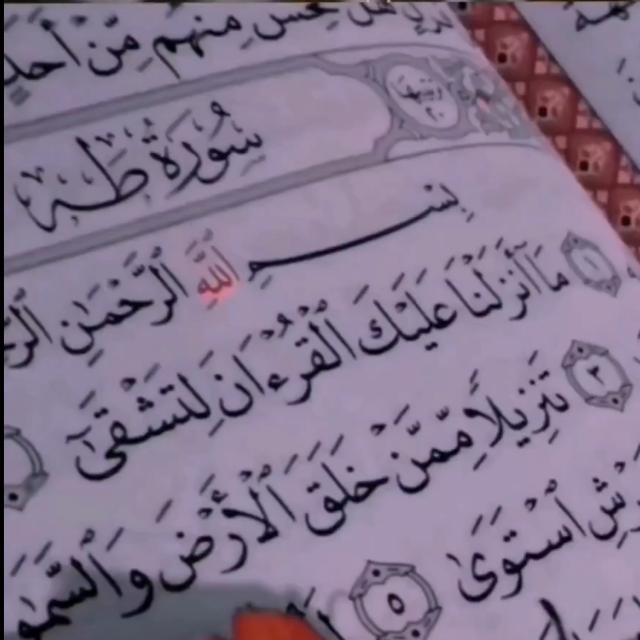 مِنْهُم مِّنْ أَحَدٍ
سُورَةُ طه
بِسْمِ اللَّهِ الرَّحْمَٰنِ
مَا أَنزَلْنَا عَلَيْكَ الْقُرْءَانَ لِتَشْقَىٰ
تَنزِيلًا مِّمَّنْ خَلَقَ الْأَرْضَ وَالسَّمَ
رْشِ اسْتَوَىٰ ٥